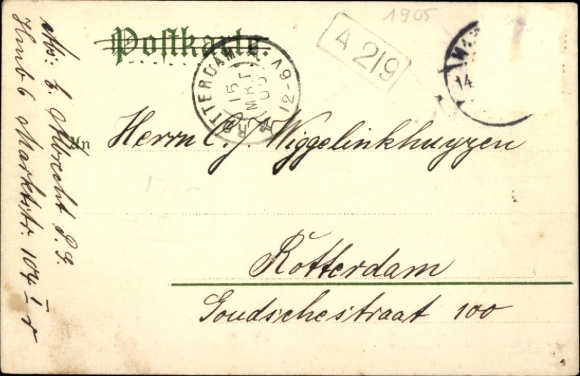 Postkarte
1905
A 219
ROTTERDAM
9-12
15 MRT 05
14.
An Herrn C. J. Wiggelinkhuyzen
Rotterdam
Goudschestraat 100
Abs: L. Albrecht P. g.
Hmb 6 Marktstr. 104 I r